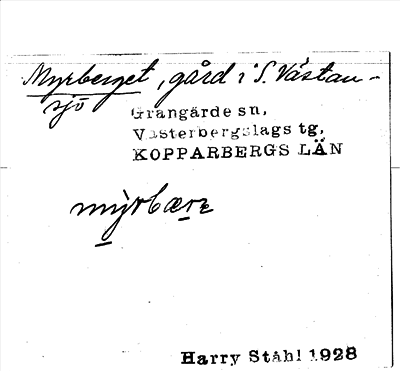 Myrberget, gård i S. Västan-
sjö
Grangärde sn,
Västerbergslags tg,
KOPPARBERGS LÄN
Harry Ståhl 1928